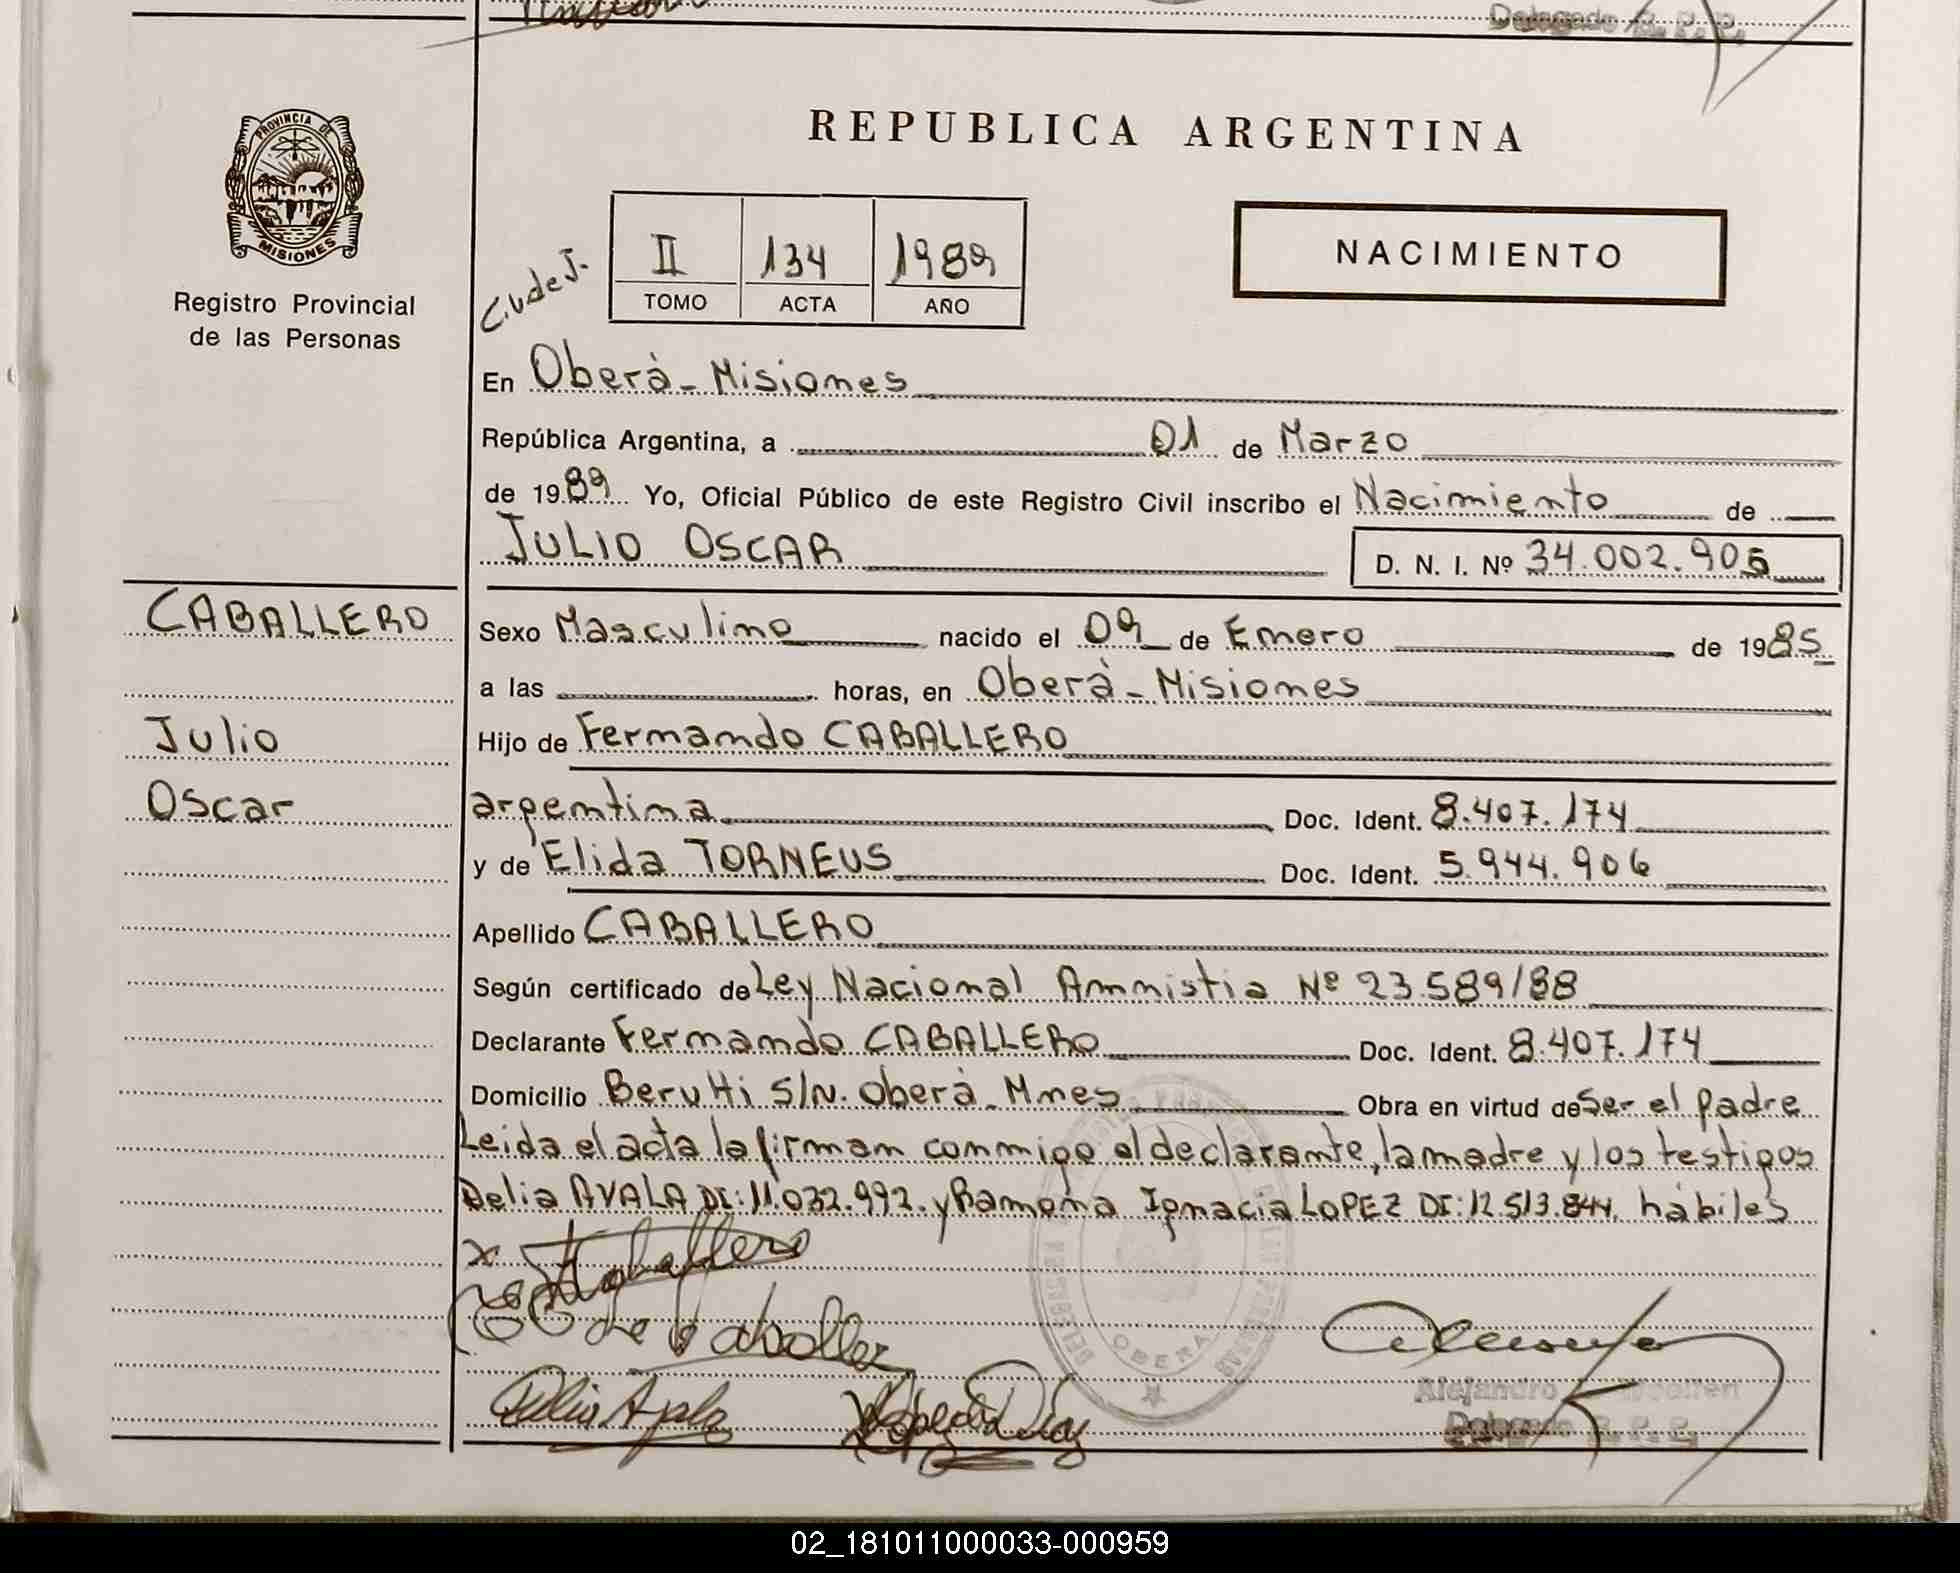 Delegado R. P. P.
PROVINCIA DE
MISIONES
Registro Provincial
de las Personas
REPUBLICA ARGENTINA
II 134 1989
TOMO ACTA AÑO
NACIMIENTO
En Oberà - Misiones
República Argentina, a 01 de Marzo
de 1989 Yo, Oficial Público de este Registro Civil inscribo el Nacimiento de
JULIO OSCAR D. N. I. Nº 34.002.905
CABALLERO
Julio
Oscar
Sexo Masculino nacido el 09 de Enero de 1985
a las horas, en Oberà - Misiones
Hijo de Fernando CABALLERO
argentina Doc. Ident. 8.407.174
y de Elida TORNEUS Doc. Ident. 5.944.906
Apellido CABALLERO
Según certificado de Ley Nacional Amnistia Nº 23.589/88
Declarante Fernando CABALLERO Doc. Ident. 8.407.174
Domicilio Berutti S/N. Oberà. Mnes Obra en virtud de Ser el padre
Leida el acta la firman conmigo el declarante, la madre y los testigos
Delia AYALA DI: 11.032.992. y Ramona Ignacia LOPEZ DI: 12.513.844. hábiles
x Caballero
de Caballer
Delia Ayala
OBERA
Alejandro
Delegado R. P. P.
02_181011000033-000959